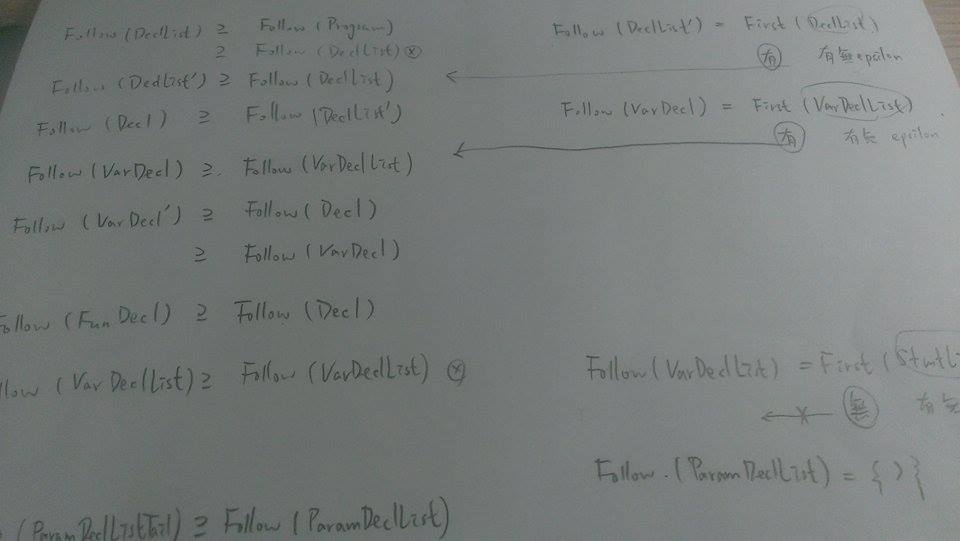 Follow (DeclList) ≥ Follow (Program)
≥ Follow (DeclList) ⊗
Follow (DeclList') ≥ Follow (DeclList)
Follow (Decl) ≥ Follow (DeclList')
Follow (VarDecl) ≥ Follow (VarDeclList)
Follow (VarDecl') ≥ Follow (Decl)
≥ Follow (VarDecl)
Follow (FunDecl) ≥ Follow (Decl)
llow (VarDeclList) ≥ Follow (VarDeclList) ⊗
(ParamDeclListTail) ≥ Follow (ParamDeclList)
Follow (DeclList') = First (DeclList)
有 有無epsilon
Follow (VarDecl) = First (VarDeclList)
有 有無 epsilon
Follow (VarDeclList) = First (StmtLi
無 有無
Follow (ParamDeclList) = { ) }